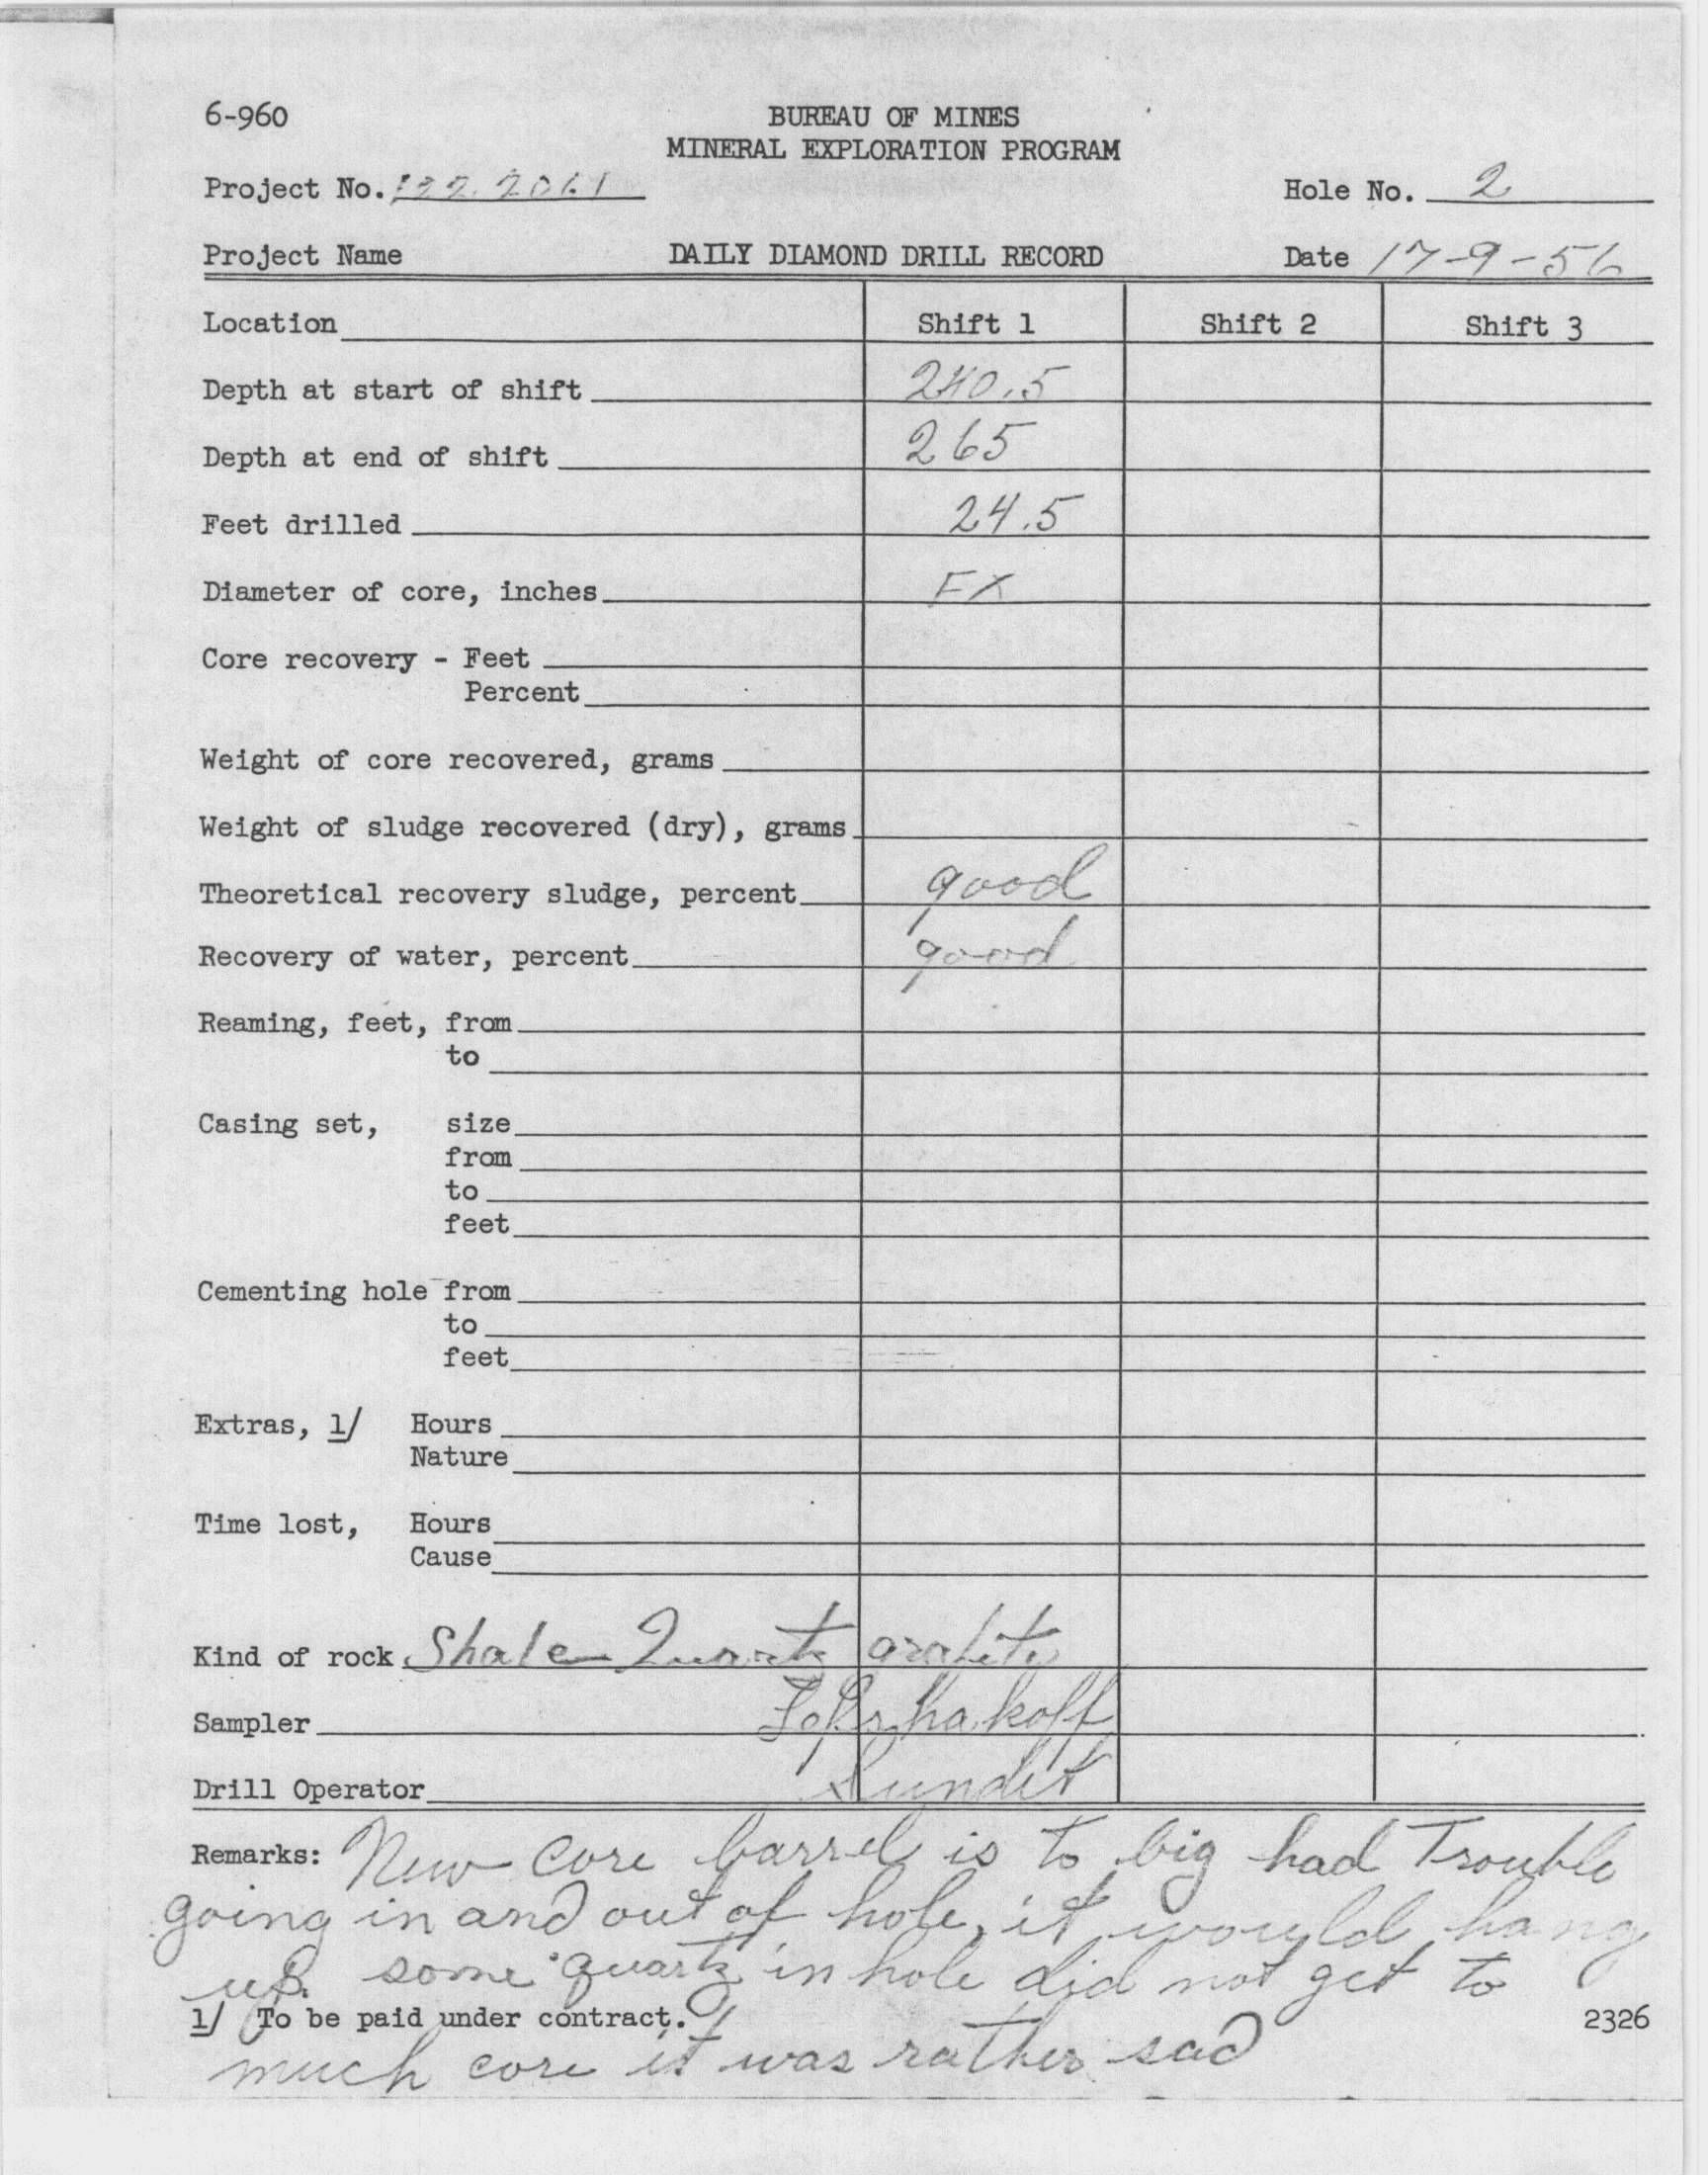 6-960
BUREAU OF MINES
MINERAL EXPLORATION PROGRAM
Project No. 122.2061 Hole No. 2
Project Name DAILY DIAMOND DRILL RECORD Date 17-9-56
Location Shift 1 Shift 2 Shift 3
Depth at start of shift 240.5
Depth at end of shift 265
Feet drilled 24.5
Diameter of core, inches EX
Core recovery - Feet
Percent
Weight of core recovered, grams
Weight of sludge recovered (dry), grams
Theoretical recovery sludge, percent good
Recovery of water, percent good
Reaming, feet, from
to
Casing set, size
from
to
feet
Cementing hole from
to
feet
Extras, 1/ Hours
Nature
Time lost, Hours
Cause
Kind of rock Shale Quartz
Sampler
Drill Operator
Remarks: New core barrel is to big had Trouble
going in and out of hole, it would hang
up. some quartz in hole did not get to
1/ To be paid under contract. 2326
much core it was rather sad